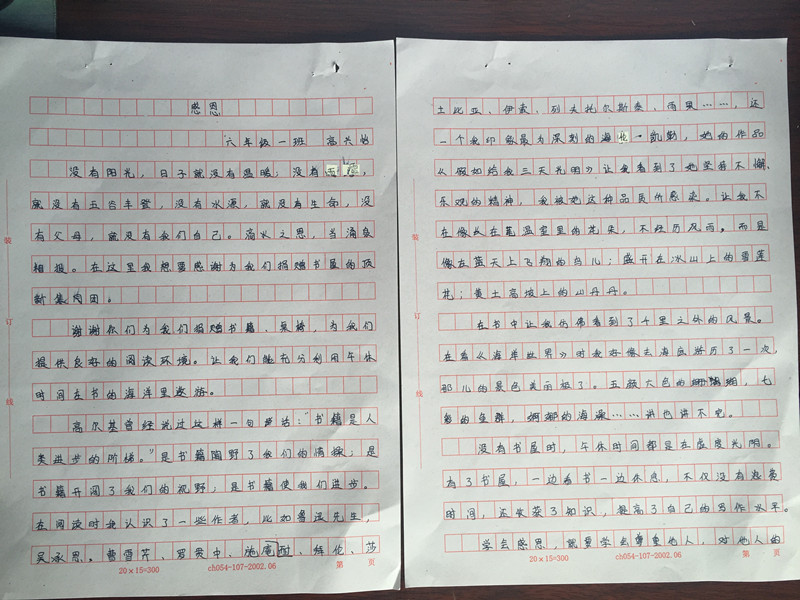 感恩
六年级一班 高兴怡
没有阳光，日子就没有温暖；没有雨露，
就没有五谷丰登，没有水源，就没有生命，没
有父母，就没有我们自己。滴水之恩，当涌泉
相报。在这里我想要感谢为我们捐赠书屋的
新集团。
谢谢你们为我们捐赠书籍、桌椅，为我们
提供良好的阅读环境。让我们能充分利用午休
时间在书的海洋里遨游。
高尔基曾经说过这样一句话：“书籍是人
类进步的阶梯。”是书籍陶野了我们的情操；是
书籍开阔了我们的视野；是书籍使我们进步。
在阅读时我认识了一些作者，比如鲁迅先生，
吴承恩。曹雪芹、罗贯中、施耐、拜伦、莎
20×15=300 ch054-107-2002.06 第 页
装
订
线
士比亚、伊索、列夫托尔斯泰、雨果……，还
一个我印象最为深刻的海伦·凯勒，她的作品
《假如给我三天光明》让我看到了她坚强不懈、
乐观的精神，我被她这种品质所感染。让我不
在像长在笔温室里的花朵，不经历风雨。而是
像在蓝天上飞翔的鸟儿；盛开在冰山上的雪莲
花；黄土高坡上的山丹丹。
在书中让我仿佛看到了千里之外的风景。
在看《海洋世界》时我好像去海底游历了一次，
那儿的景色美丽极了。五颜六色的珊瑚，七
彩的鱼群，婀娜的海藻……讲也讲不完。
没有书屋时，午休时间都是在虚度光阴。
有了书屋，一边看书一边休息，不仅没有浪费
时间，还收获了知识，提高了自己的写作水平。
学会感恩，就要学会尊重他人，对他人的
20×15=300 ch054-107-2002.06 第 页
装
订
线